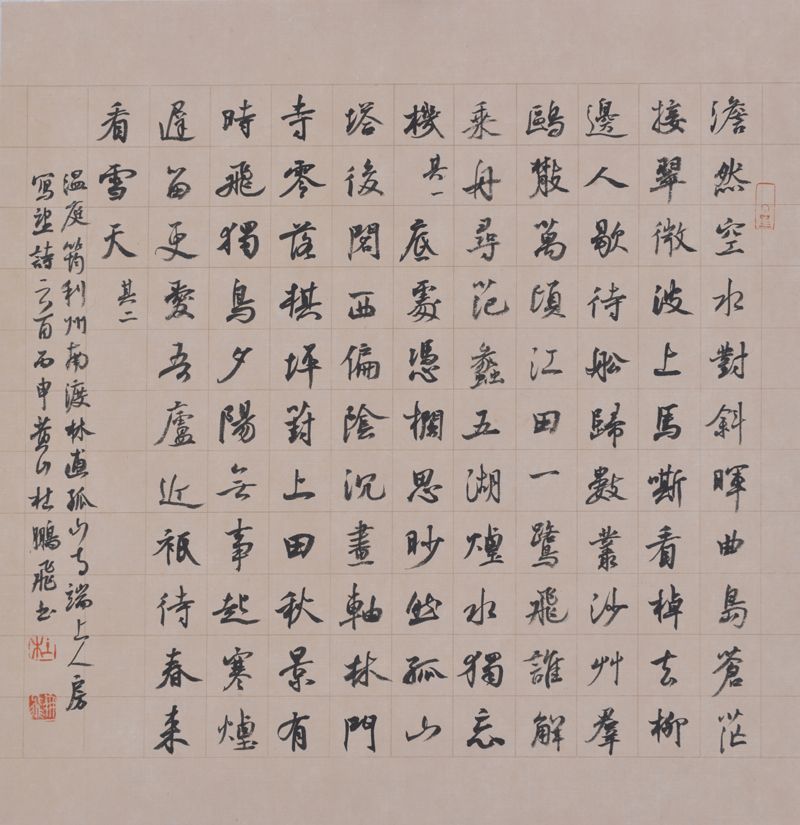 澹然空水對斜暉曲島蒼茫
接翠微波上馬嘶看棹去柳
邊人歇待船歸數叢沙艸羣
鷗散萬頃江田一鷺飛誰解
乘舟尋范蠡五湖煙水獨忘
機 其一 底處憑欄思眇然孤山
塔後閣西偏陰沉畫軸林門
寺零落棋枰葑上田秋景有
時飛獨鳥夕陽無事起寒煙
遲留更愛吾廬近衹待春来
看雪天 其二
温庭筠利州南渡林逋孤山寺端上人房
寫望詩二首丙申黄山杜鵬飛書